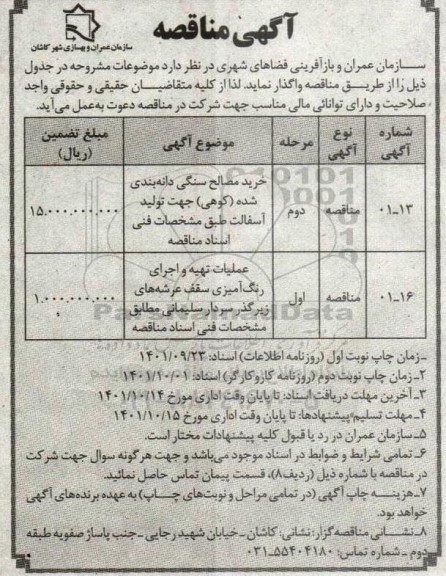 آگهی مناقصه
سازمان عمران و بهسازی شهر کاشان
سازمان عمران و بازآفرینی فضاهای شهری در نظر دارد موضوعات مشروحه در جدول
ذیل را از طریق مناقصه واگذار نماید. لذا از کلیه متقاضیان حقیقی و حقوقی واجد
صلاحیت و دارای توانائی مالی مناسب جهت شرکت در مناقصه دعوت به‌عمل می‌آید.
شماره آگهی | نوع آگهی | مرحله | موضوع آگهی | مبلغ تضمین (ریال)
۱۳-۰۱ | مناقصه | دوم | خرید مصالح سنگی دانه‌بندی شده (کوهی) جهت تولید آسفالت طبق مشخصات فنی اسناد مناقصه | ۱۵.۰۰۰.۰۰۰.۰۰۰
۱۶-۰۱ | مناقصه | اول | عملیات تهیه و اجرای رنگ‌آمیزی سقف عرشه‌های زیرگذر سردار سلیمانی مطابق مشخصات فنی اسناد مناقصه | ۱.۰۰۰.۰۰۰.۰۰۰
۱-زمان چاپ نوبت اول (روزنامه اطلاعات) اسناد: ۱۴۰۱/۰۹/۲۳
۲-زمان چاپ نوبت دوم (روزنامه کار و کارگر) اسناد: ۱۴۰۱/۱۰/۰۱
۳-آخرین مهلت دریافت اسناد: تا پایان وقت اداری مورخ ۱۴۰۱/۱۰/۱۴
۴-مهلت تسلیم پیشنهادها: تا پایان وقت اداری مورخ ۱۴۰۱/۱۰/۱۵
۵-سازمان عمران در رد یا قبول کلیه پیشنهادات مختار است.
۶-تمامی شرایط و ضوابط در اسناد موجود می‌باشد و جهت هرگونه سوال جهت شرکت
در مناقصه با شماره ذیل (ردیف۸)، قسمت پیمان تماس حاصل نمائید.
۷-هزینه چاپ آگهی (در تمامی مراحل و نوبت‌های چاپ) به عهده برنده‌های آگهی
خواهد بود.
۸-نشانی مناقصه‌گزار: نشانی: کاشان-خیابان شهید رجایی-جنب پاساژ صفویه طبقه
دوم-شماره تماس: ۵۵۴۰۴۱۸۰-۰۳۱